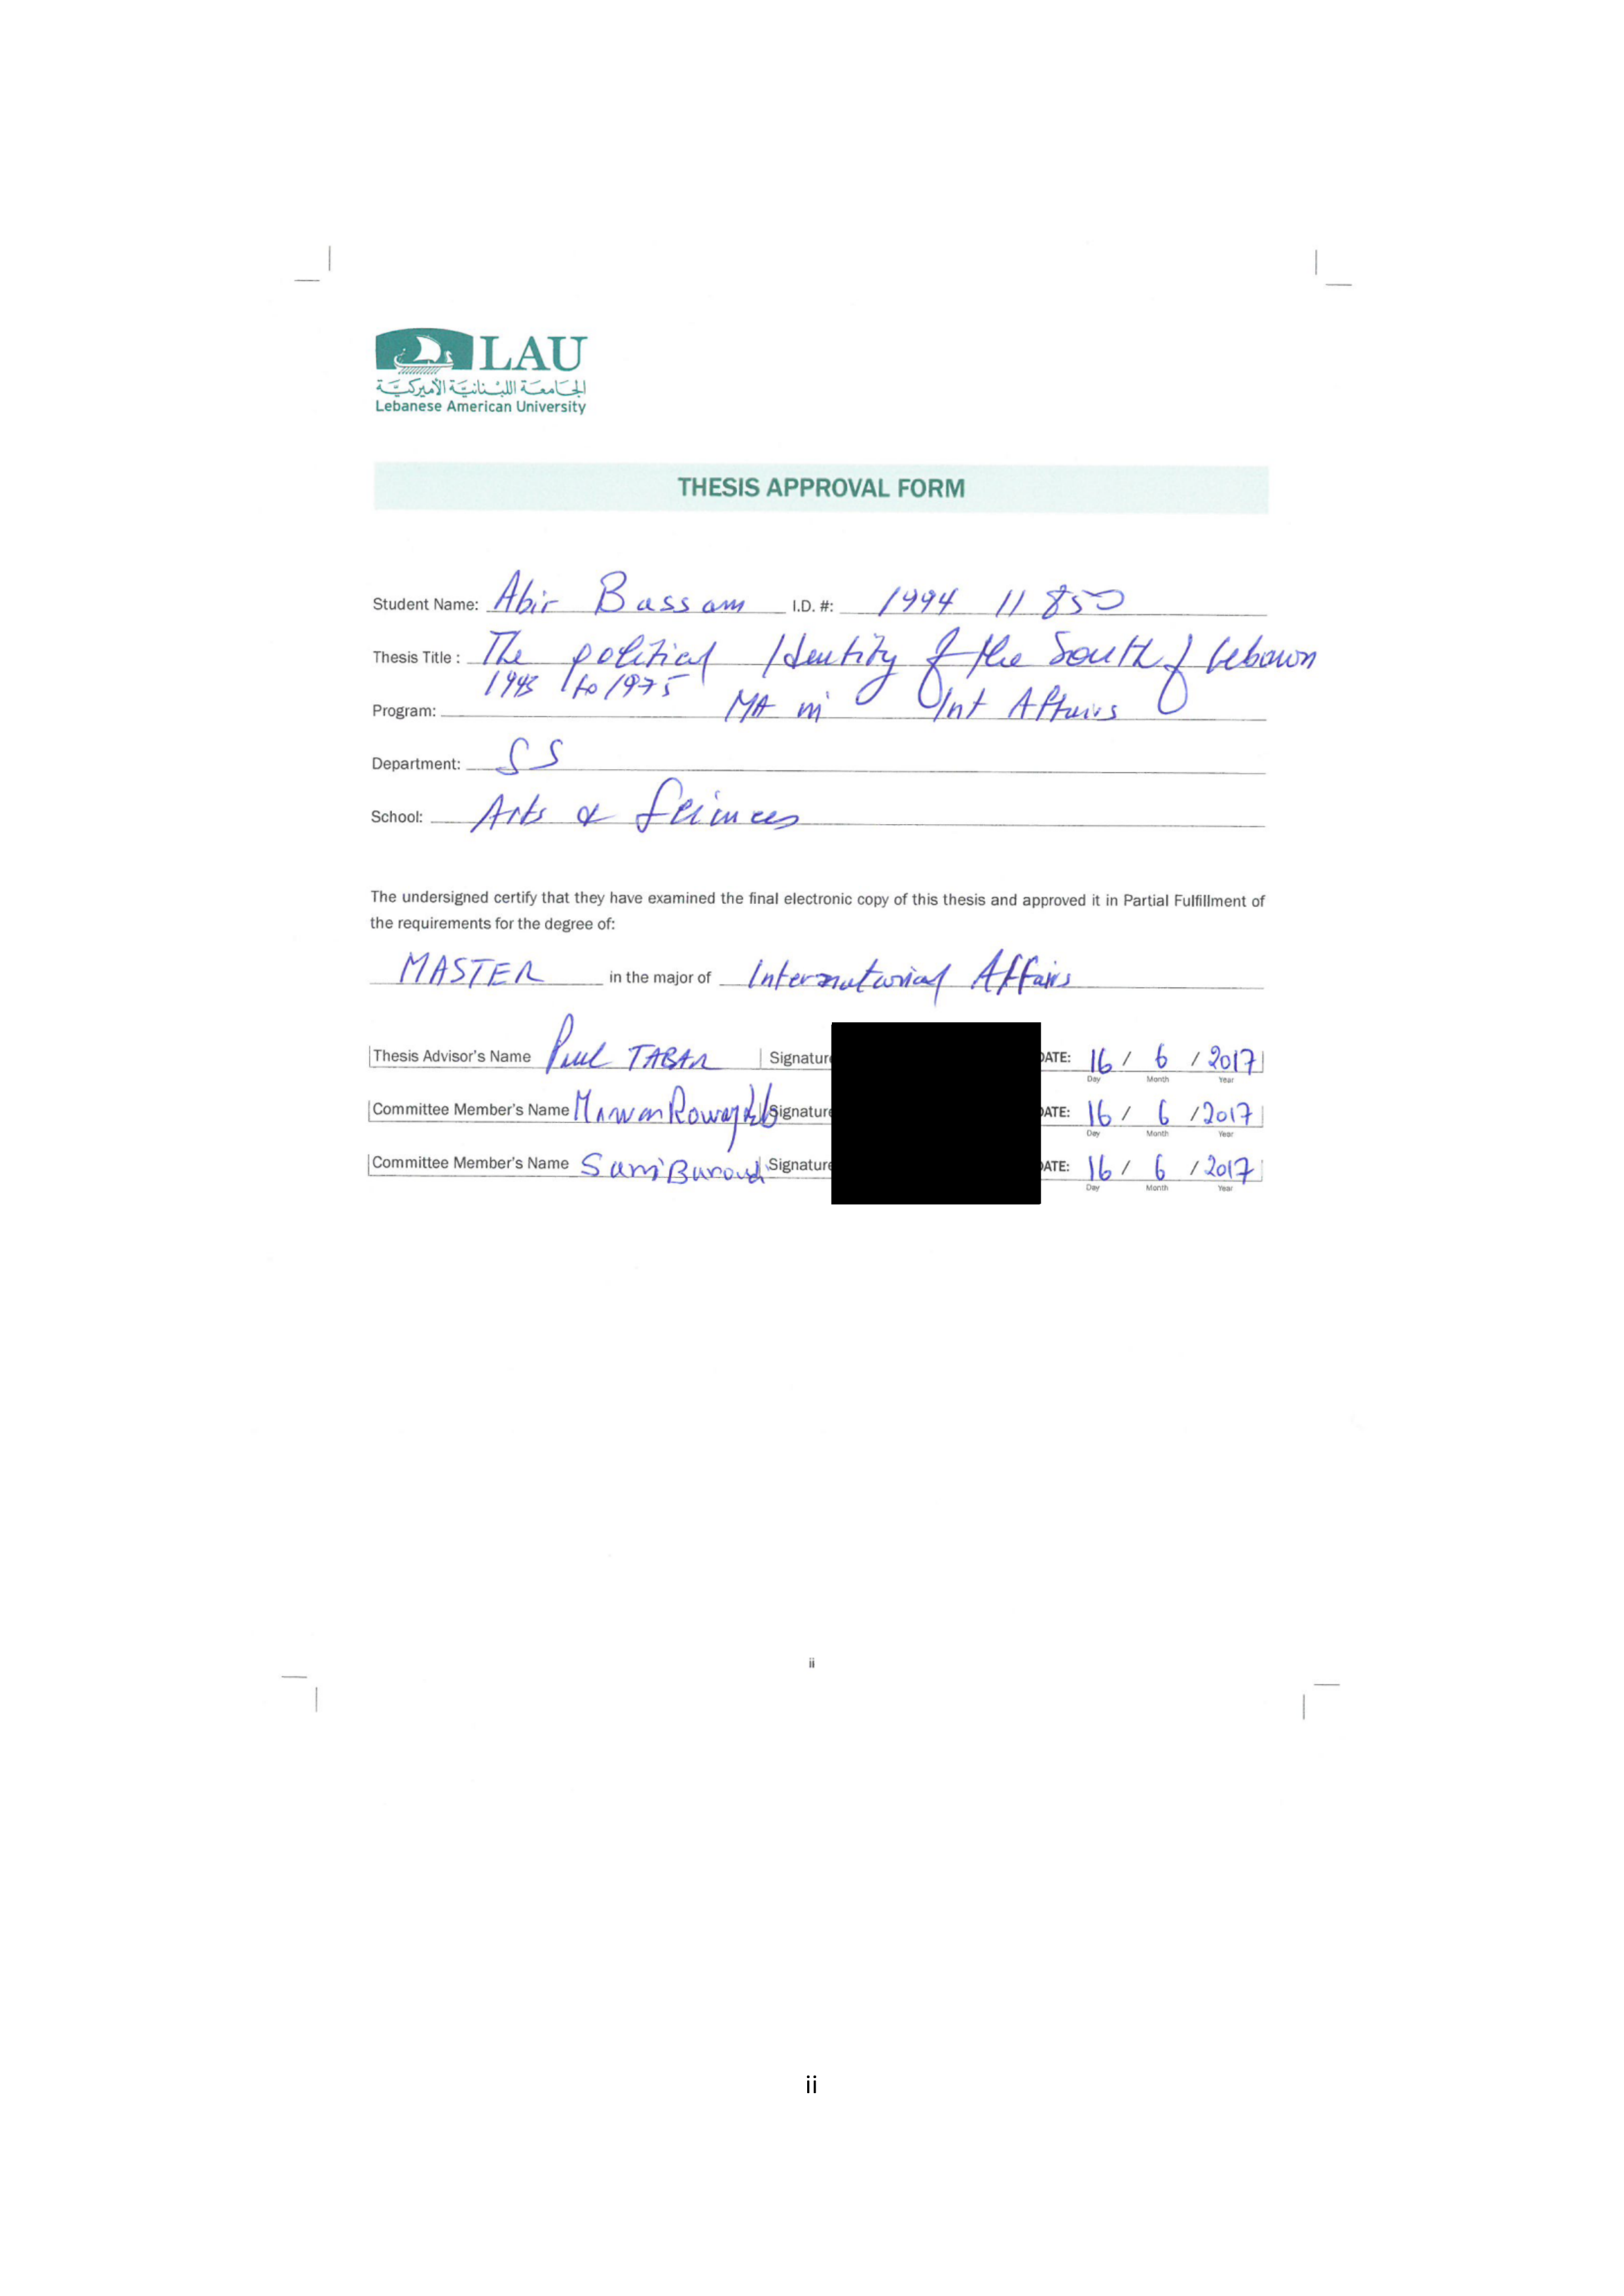 LAU
الجامعة اللبنانية الأميركية
Lebanese American University
THESIS APPROVAL FORM
Student Name: Abir Bassam I.D. #: 1994 11 850
Thesis Title : The political Identity of the South of Lebanon
1943 to 1975
Program: MA in Int Affairs
Department: SS
School: Arts & Sciences
The undersigned certify that they have examined the final electronic copy of this thesis and approved it in Partial Fulfillment of
the requirements for the degree of:
MASTER in the major of International Affairs
Thesis Advisor's Name Paul TABAR Signature DATE: 16 / 6 / 2017
Day Month Year
Committee Member's Name Marwan Rowayheb Signature DATE: 16 / 6 / 2017
Day Month Year
Committee Member's Name Sami Baroudi Signature DATE: 16 / 6 / 2017
Day Month Year
ii
ii